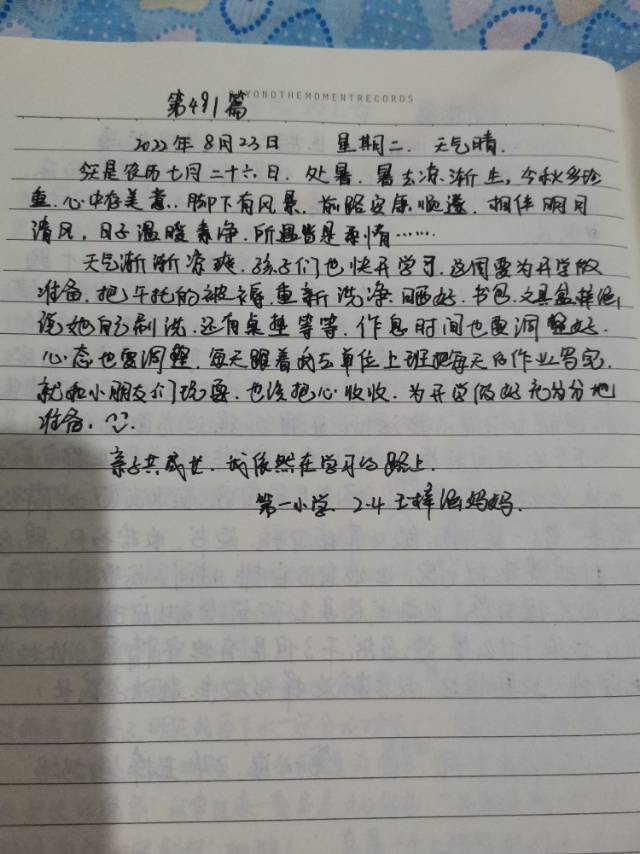 BEYONDTHEMOMENTRECORDS
第491篇
2022年8月23日 星期二. 天气晴.
今天是农历七月二十六日. 处暑. 暑去凉渐生, 今秋多珍
重. 心中存美意.. 脚下有风景. 前路安康顺遂. 相伴明月
清风, 日子温暖素净. 所遇皆是柔情……
天气渐渐凉爽. 孩子们也快开学习. 这周要为开学做
准备. 把午托的被褥. 重新洗净晒好. 书包. 文具盒梓
说她自己刷洗. 还有桌垫等等. 作息时间也要调整好.
心态也要调整. 每天跟着妈去单位上班把每天的作业写完.
就和小朋友们玩耍. 也该把心收收. 为开学做好充分地
准备.
亲子共成长. 我依然在学习的路上.
第一小学. 2.4 王梓 妈妈.